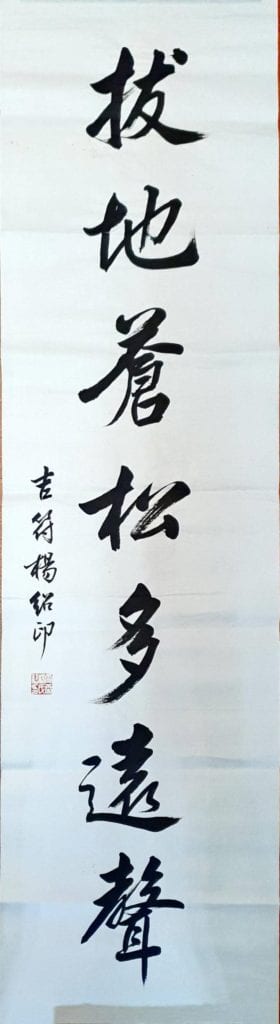 拔地蒼松多遠聲
吉符楊紹印